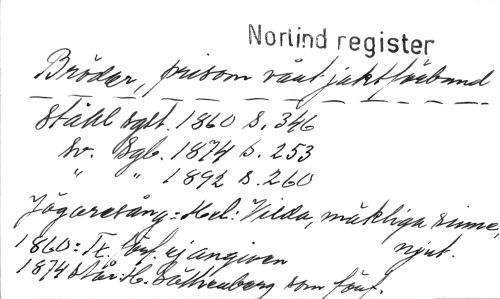 Norlind register
Brödar, prisom vårt jaktförbund
Ståhl sgst. 1860 S. 346
Sv. Sgb. 1874 S. 253
" " 1892 S. 260
Jägaresång = Mel: Vilda, mäktiga sinne,
njut.
1860: Tx. förf. ej angiven
1874 står: H. Sätherberg som förf.